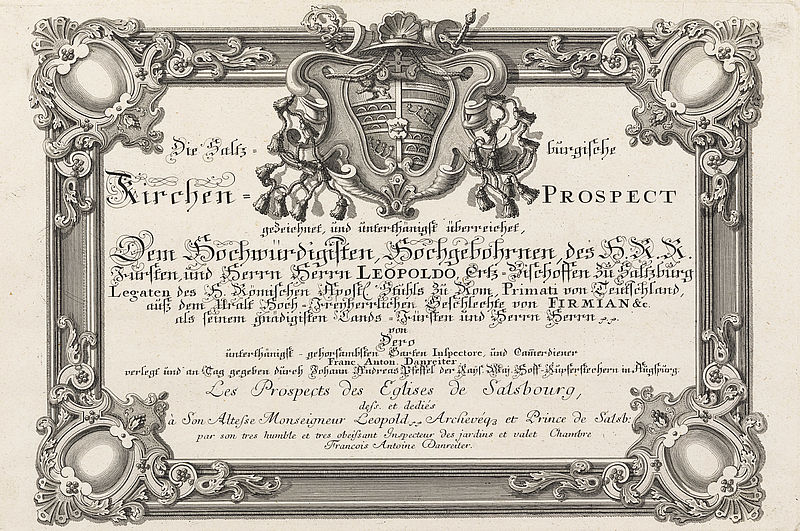 Die Saltz- bürgische
Kirchen- PROSPECT
gezeichnet, und unterthänigst überreichet,
Dem Hochwürdigsten, Hochgebohrnen, des H. R. R.
Fürsten, und Herrn Herrn LEOPOLDO, Ertz-Bischoffen zu Saltzburg
Legaten des H. Römischen Apost. Stuhls zu Rom, Primati von Teutschland,
auß dem Uralt Hoch-Freyherrlichen Geschlechte von FIRMIAN &c.
als seinem gnädigsten Lands-Fürsten und Herrn Herrn
von
Dero
unterthänigst-gehorsambsten Garten Inspectore, und Cam̄erdiener
Franc. Anton. Danreiter.
verlegt und an Tag gegeben dürch Johann Andreas Pfeffel der Kays. Maj. Hoff-Kupferstechern in Augspurg.
Les Prospects des Eglises de Salsbourg,
dess. et dediés
à Son Altesse Monseigneur Leopold Archevéq3 et Prince de Salsb.
par son tres humble et tres obeissant Inspecteur des jardins et valet Chambre
Francois Antoine Danreiter.